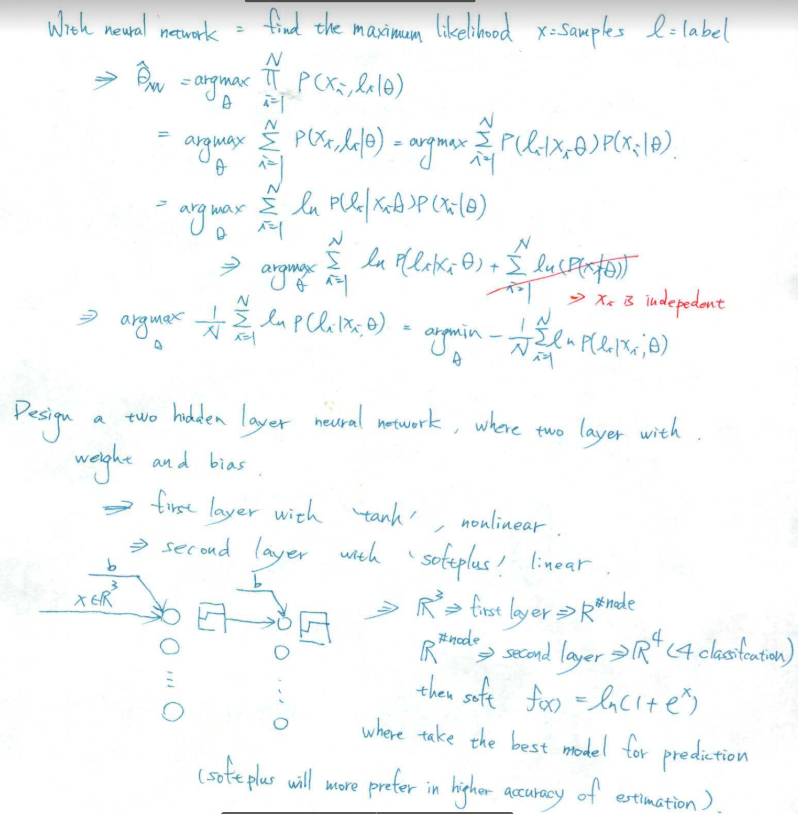 With neural network = find the maximum likelihood x=samples l=label
⇒ θ̂_NN = argmax_θ ∏_{i=1}^N P(x_i, l_i|θ)
= argmax_θ ∑_{i=1}^N P(x_i, l_i|θ) = argmax ∑_{i=1}^N P(l_i|x_i, θ)P(x_i|θ).
= argmax_θ ∑_{i=1}^N ln P(l_i|x_i θ)P(x_i|θ)
⇒ argmax_θ ∑_{i=1}^N ln P(l_i|x_i θ) + ∑_{i=1}^N ln(P(x_i|θ))
⇒ x_i is indepedent
⇒ argmax_θ 1/N ∑_{i=1}^N ln P(l_i|x_i, θ) = argmin_θ - 1/N ∑_{i=1}^N ln P(l_i|x_i, θ)
Design a two hidden layer neural network, where two layer with
weight and bias.
⇒ first layer with 'tanh', nonlinear.
⇒ second layer with 'softplus' linear.
b b
x∈R³ ⇒ R³ ⇒ first layer ⇒ R^#node
R^#node ⇒ second layer ⇒ R⁴ (4 classifcation)
then soft f(x) = ln(1+e^x)
where take the best model for prediction
(softplus will more prefer in higher accuracy of estimation).